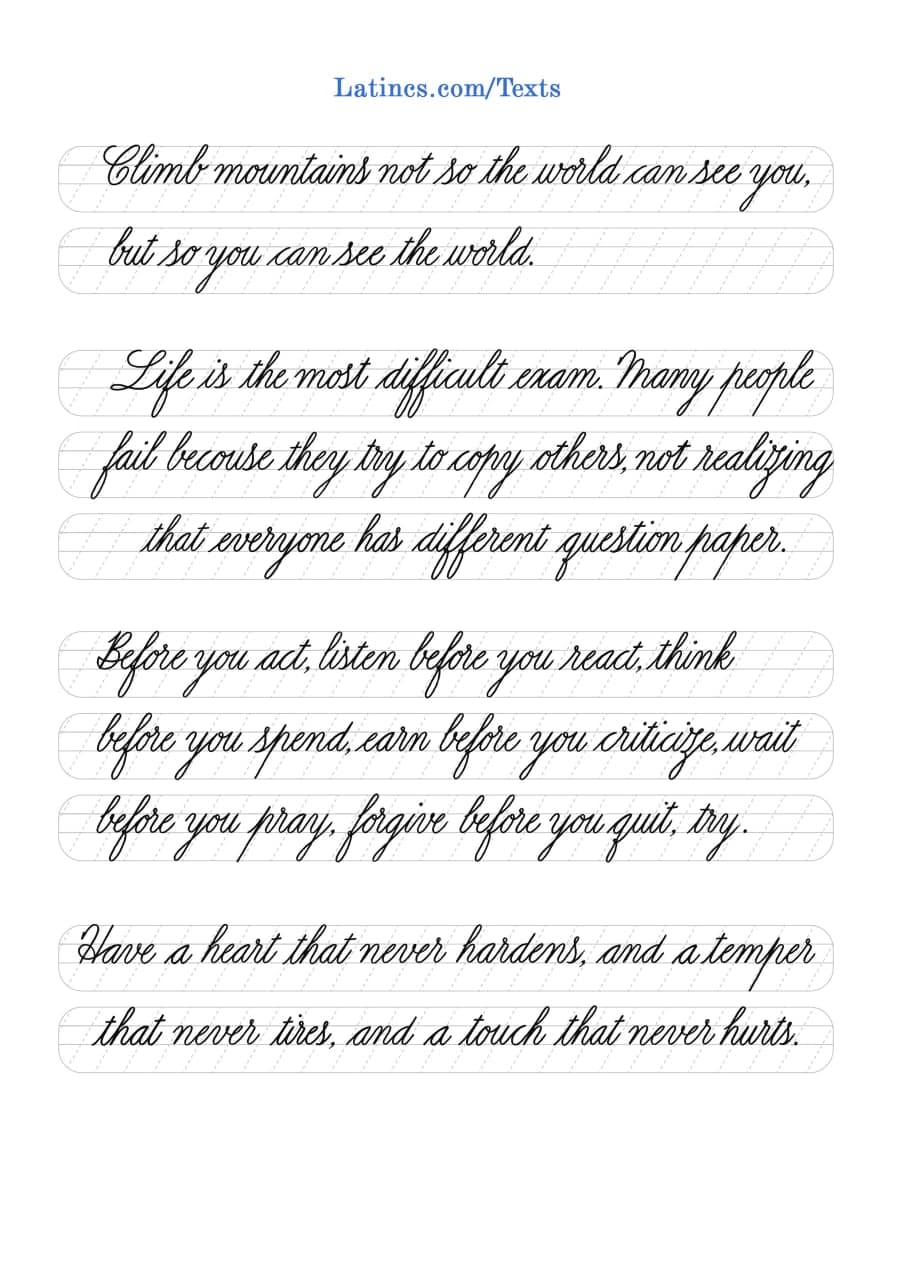 Latincs.com/Texts
Climb mountains not so the world can see you,
but so you can see the world.
Life is the most difficult exam. Many people
fail becouse they try to copy others, not realizing
that everyone has different question paper.
Before you act, listen before you react, think
before you spend, earn before you criticize, wait
before you pray, forgive before you quit, try.
Have a heart that never hardens, and a temper
that never tires, and a touch that never hurts.